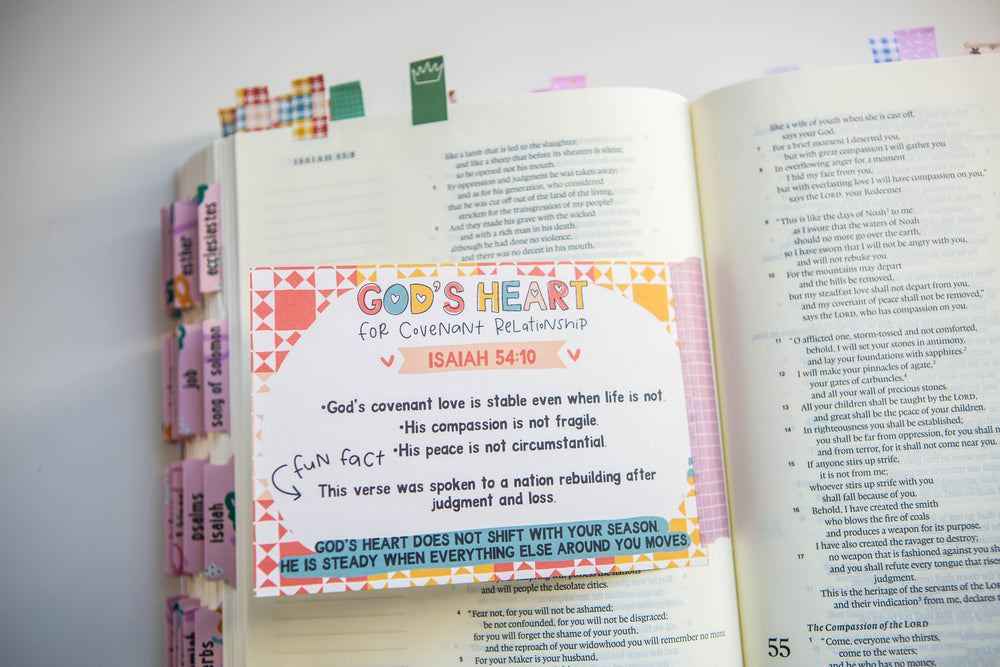 ISAIAH 53:8
like a lamb that is led to the slaughter,
and like a sheep that before its shearers is silent,
so he opened not his mouth.
8 By oppression and judgment he was taken away;
and as for his generation, who considered
that he was cut off out of the land of the living,
stricken for the transgression of my people?
9 And they made his grave with the wicked
and with a rich man in his death,
although he had done no violence,
and there was no deceit in his mouth.
esther
ecclesiastes
job
song of solomon
psalms
isaiah
GOD'S HEART
FOR COVENANT RELATIONSHIP
ISAIAH 54:10
•God's covenant love is stable even when life is not.
•His compassion is not fragile.
•His peace is not circumstantial.
FUN FACT
This verse was spoken to a nation rebuilding after
judgment and loss.
GOD'S HEART DOES NOT SHIFT WITH YOUR SEASON.
HE IS STEADY WHEN EVERYTHING ELSE AROUND YOU MOVES
and will people the desolate cities.
4 "Fear not, for you will not be ashamed;
be not confounded, for you will not be disgraced;
for you will forget the shame of your youth,
and the reproach of your widowhood you will remember no more
5 For your Maker is your husband,
like a wife of youth when she is cast off,
says your God.
7 For a brief moment I deserted you,
but with great compassion I will gather you.
8 In overflowing anger for a moment
I hid my face from you,
but with everlasting love I will have compassion on you,"
says the LORD, your Redeemer.
9 "This is like the days of Noah¹ to me:
as I swore that the waters of Noah
should no more go over the earth,
so I have sworn that I will not be angry with you,
and will not rebuke you.
10 For the mountains may depart
and the hills be removed,
but my steadfast love shall not depart from you,
and my covenant of peace shall not be removed,"
says the LORD, who has compassion on you.
11 "O afflicted one, storm-tossed and not comforted,
behold, I will set your stones in antimony,
and lay your foundations with sapphires.²
12 I will make your pinnacles of agate,³
your gates of carbuncles,⁴
and all your wall of precious stones.
13 All your children shall be taught by the LORD,
and great shall be the peace of your children.
14 In righteousness you shall be established;
you shall be far from oppression, for you shall n
and from terror, for it shall not come near you.
15 If anyone stirs up strife,
it is not from me;
whoever stirs up strife with you
shall fall because of you.
16 Behold, I have created the smith
who blows the fire of coals
and produces a weapon for its purpose.
I have also created the ravager to destroy;
17 no weapon that is fashioned against you sh
and you shall refute every tongue that rises
judgment.
This is the heritage of the servants of the LO
and their vindication⁵ from me, declares t
The Compassion of the LORD
55 1 "Come, everyone who thirsts,
come to the waters;
and he who has no money,